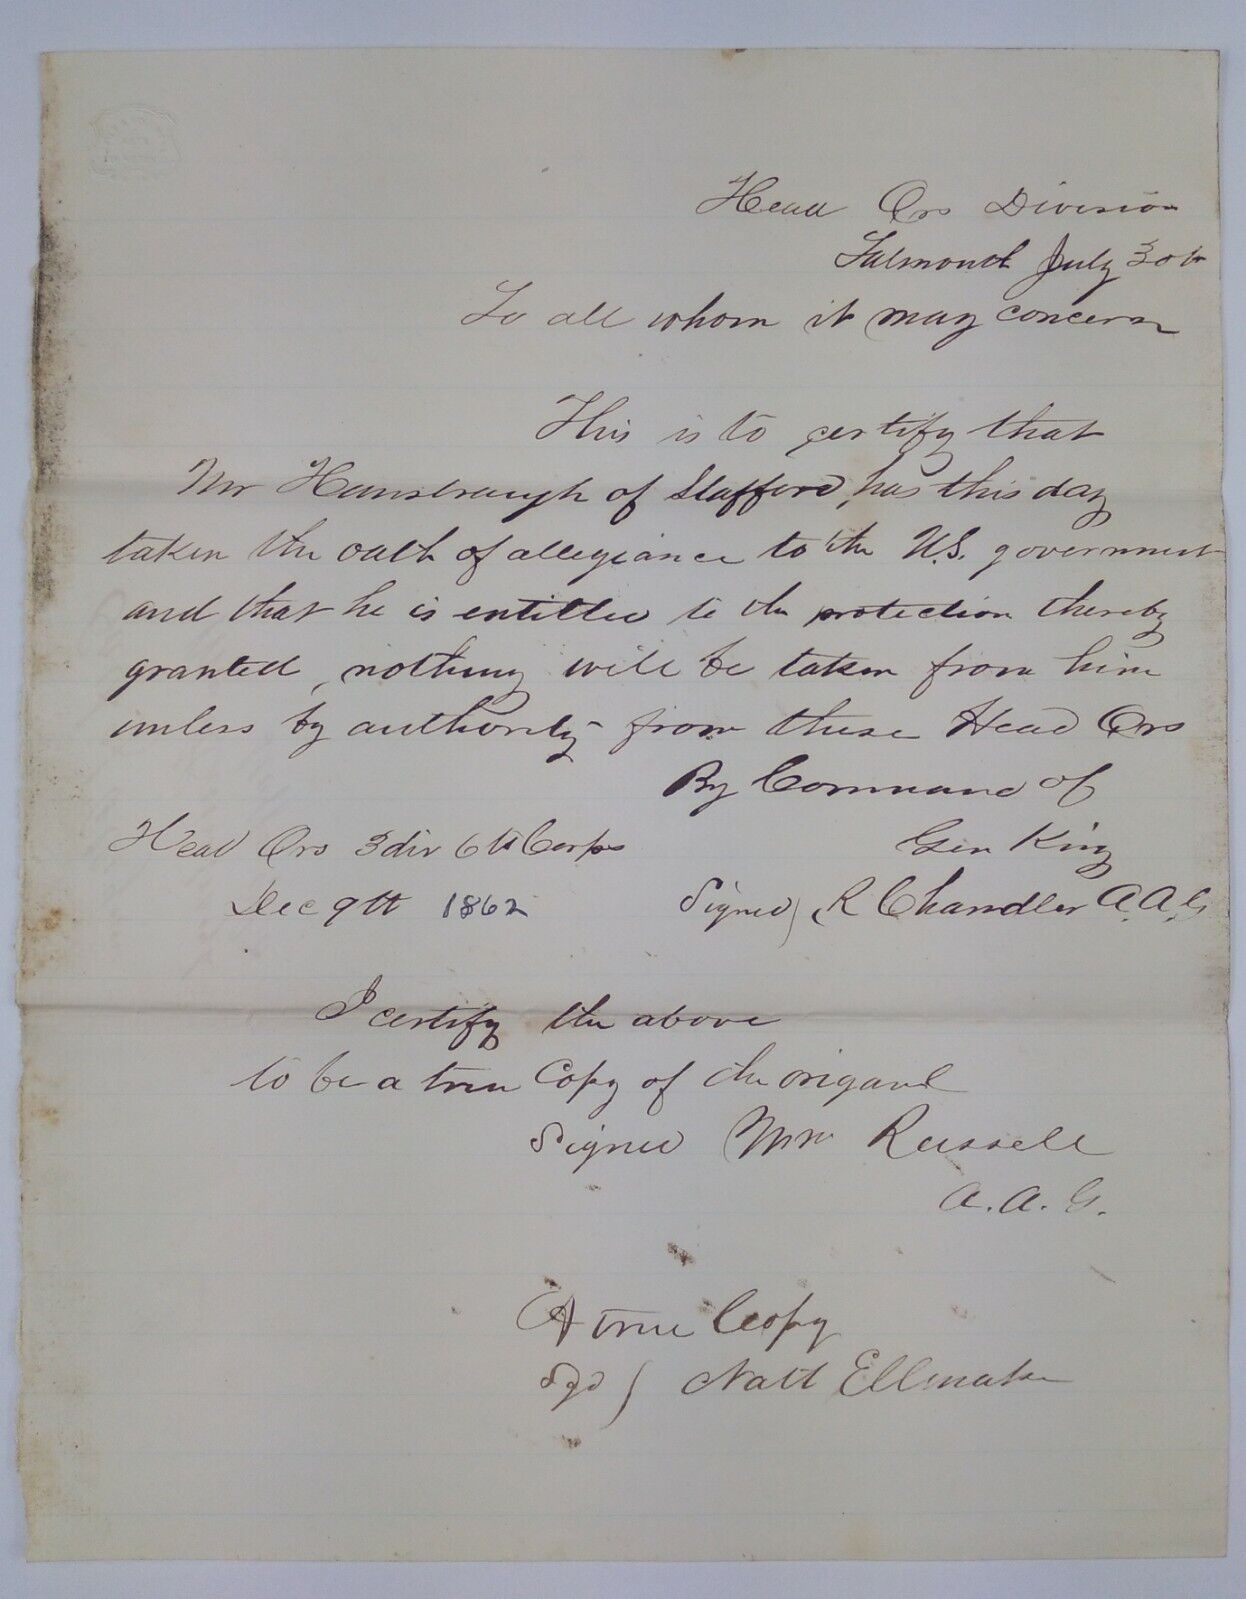 Head Qrs Division
Falmouth July 30th
To all whom it may concern
This is to certify that
Mr Hansbraugh of Stafford, has this day
taken the oath of allegiance to the U.S. government
and that he is entitled to the protection thereby
granted, nothing will be taken from him
unless by authority from these Head Qrs
By Command of
Gen King
Signed) R Chandler A.A.G
Head Qrs 3 div 6th Corps
Dec 9th 1862
I certify the above
to be a true Copy of the origanl
Signed Wm Russell
A.A.G.
A true Copy
Sgd) Natt Ellmaker